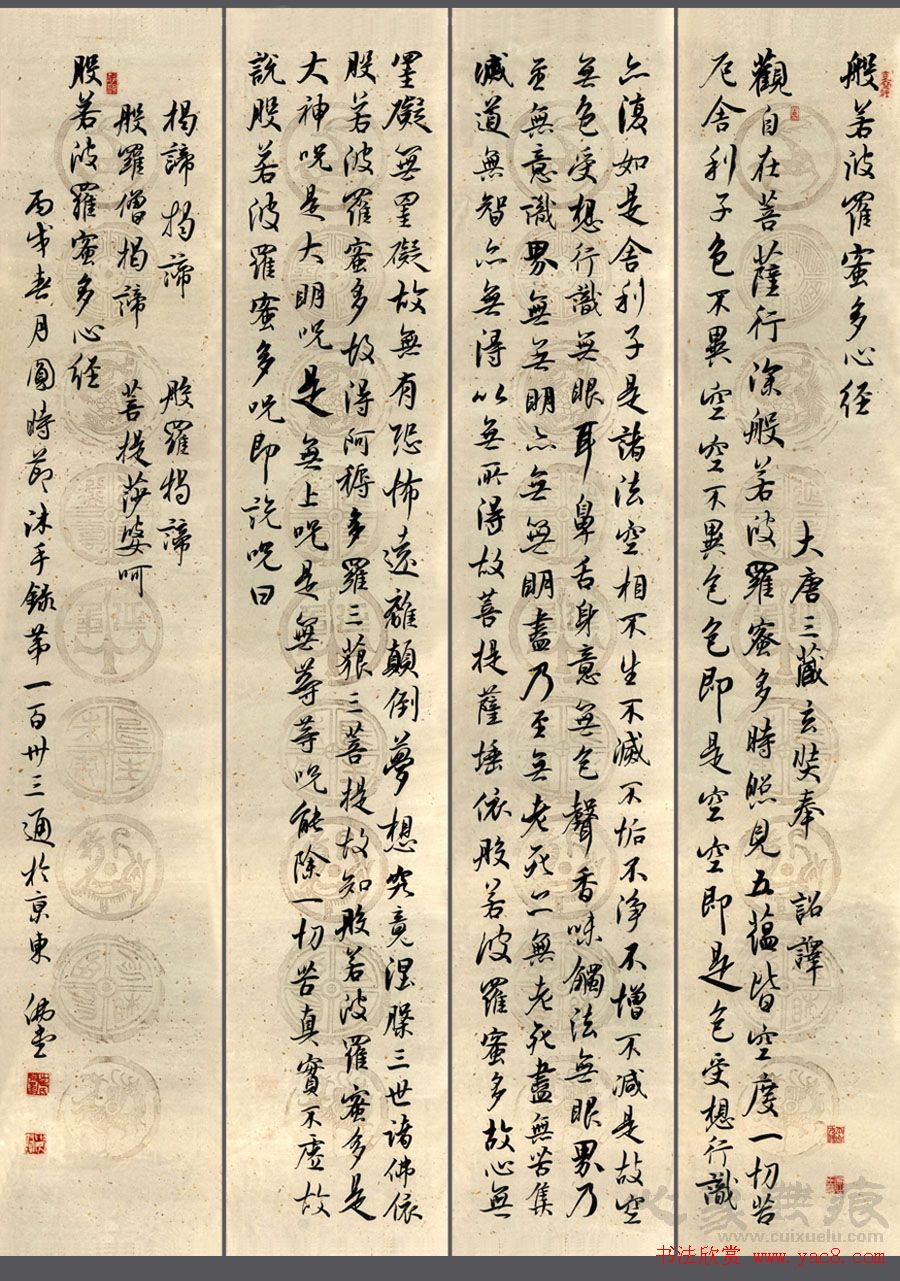 般若波羅蜜多心经
大唐三藏玄奘奉 詔譯
觀自在菩薩行深般若波羅蜜多時照見五蕴皆空度一切苦
厄舍利子色不異空空不異色色即是空空即是色受想行識
亦復如是舍利子是諸法空相不生不滅不垢不净不增不减是故空
無色受想行識無眼耳鼻舌身意無色聲香味觸法無眼界乃
至無意識界無無明亦無無明盡乃至無老死亦無老死盡無苦集
滅道無智亦無得以無所得故菩提薩埵依般若波羅蜜多故心無
罣礙無罣礙故無有恐怖遠離顛倒夢想究竟涅槃三世諸佛依
般若波羅蜜多故得阿耨多羅三藐三菩提故知般若波羅蜜多是
大神咒是大明咒是無上咒是無等等咒能除一切苦真實不虚故
說般若波羅蜜多咒即説咒曰
揭諦揭諦 般羅揭諦
般羅僧揭諦 菩提莎婆呵
般若波羅蜜多心经
丙戌春月圓時節沐手錄第一百卅三通於京東
心象無痕
www.cuixuelu.com
书法欣赏 www.yac8.com